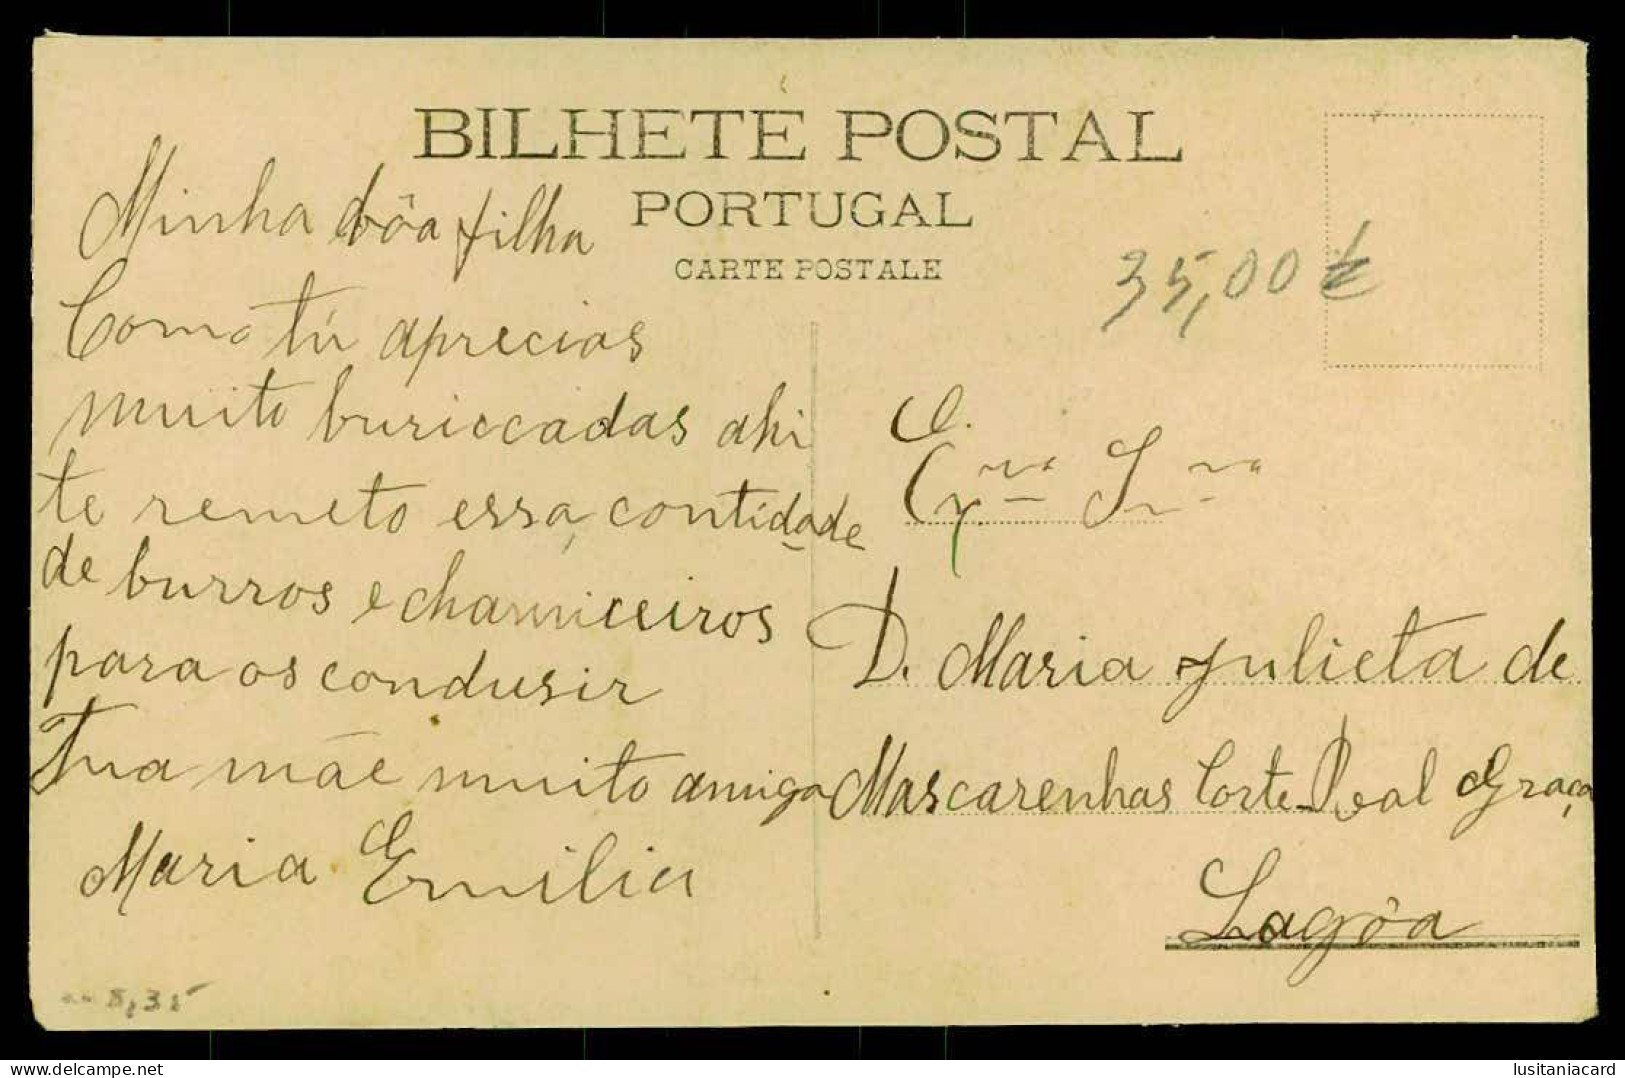 BILHETE POSTAL
PORTUGAL
CARTE POSTALE
Minha bôa filha
Como tú aprecias
muito buriccadas ahi
te remeto essa contidade
de burros e charniceiros
para os condusir
Tua mãe muito amiga
Maria Emilia
35,00 €
Exma Snra
D. Maria Julieta de
Mascarenhas Corte-Real Graça
Lagôa
delcampe.net
lusitaniacard